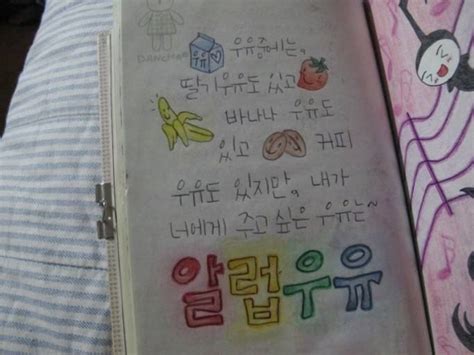 우유중에는,
딸기우유도 있고
바나나 우유도
있고 커피
우유도 있지만, 내가
너에게 주고 싶은 우유는~
알럽우유